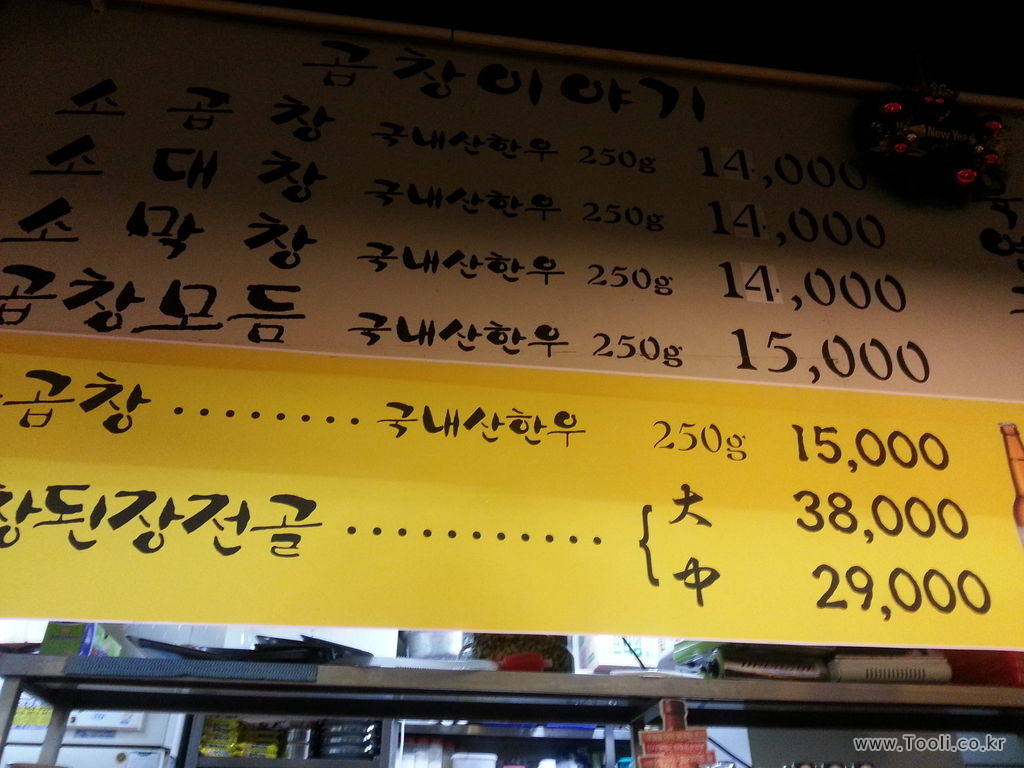 곱창이야기
소 곱 창 국내산한우 250g 14,000
소 대 창 국내산한우 250g 14,000
소 막 창 국내산한우 250g 14,000
곱창모듬 국내산한우 250g 15,000
곱창 ········· 국내산한우 250g 15,000
창된장전골 ············ { 大 38,000
中 29,000
New Year
www.Tooli.co.kr